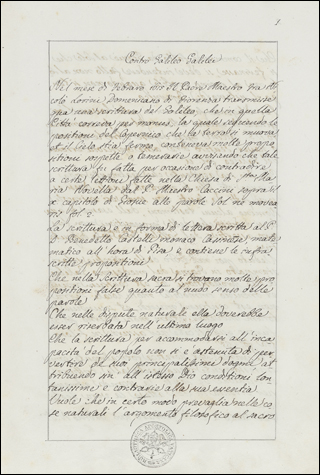 1
Contro Galileo Galilei
Nel mese di Febraro 1615 Il Padre Maestro fra Ni
colò Lorini Domenicano di Fiorenza transmesse
una scrittura del Galileo, che in quella
Città correva per manus, la quale seguendo le
positioni del Copernico che la terra si muova,
et il Cielo stia fermo, conteneva molte propo
sitioni sospette, o temerarie, avvisando che tale
scrittura fu fatta per occasione di contradire
a certe lettioni fatte nella Chiesa di S.ta Ma
ria Novella dal P. Maestro Caccini sopra il
X capitolo di Giosue alle parole Sol ne movea
ris fol. 2.
La scrittura è in forma di lettera scritta al P.
D. Benedetto Castelli monaco Cassinense, mate
matico all'hora di Pisa e contiene le infra
scritte propositioni
Che nella Scrittura sacra si trovano molte pro
positioni false quanto al nudo senso delle
parole
Che nelle dispute naturali ella doverebbe
esser riserbata nell'ultimo luogo
Che la scrittura per accommodarsi all'inca
pacità del popolo non si è astenuta di per
vertere de suoi principalissimi dogmi, at
tribuendo sin all'istesso Dio conditioni lon
tanissime e contrarie alla sua essentia
Vuole che in certo modo prevaglia nelle co
se naturali l'argomento filosofico al sacro